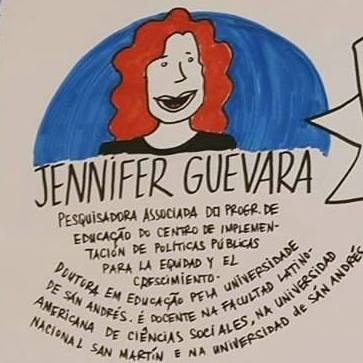 JENNIFER GUEVARA
PESQUISADORA ASSOCIADA DO PROGR. DE
EDUCAÇÃO DO CENTRO DE IMPLEMEN-
TACIÓN DE POLÍTICAS PÚBLICAS
PARA LA EQUIDAD Y EL
CRESCIMIENTO.
DOUTORA EM EDUCAÇÃO PELA UNIVERSIDADE
DE SAN ANDRÉS. É DOCENTE NA FACULTAD LATINO-
AMERICANA DE CIÊNCIAS SOCIALES, NA UNIVERSIDAD
NACIONAL SAN MARTÍN E NA UNIVERSIDAD DE SAN ANDRÉS